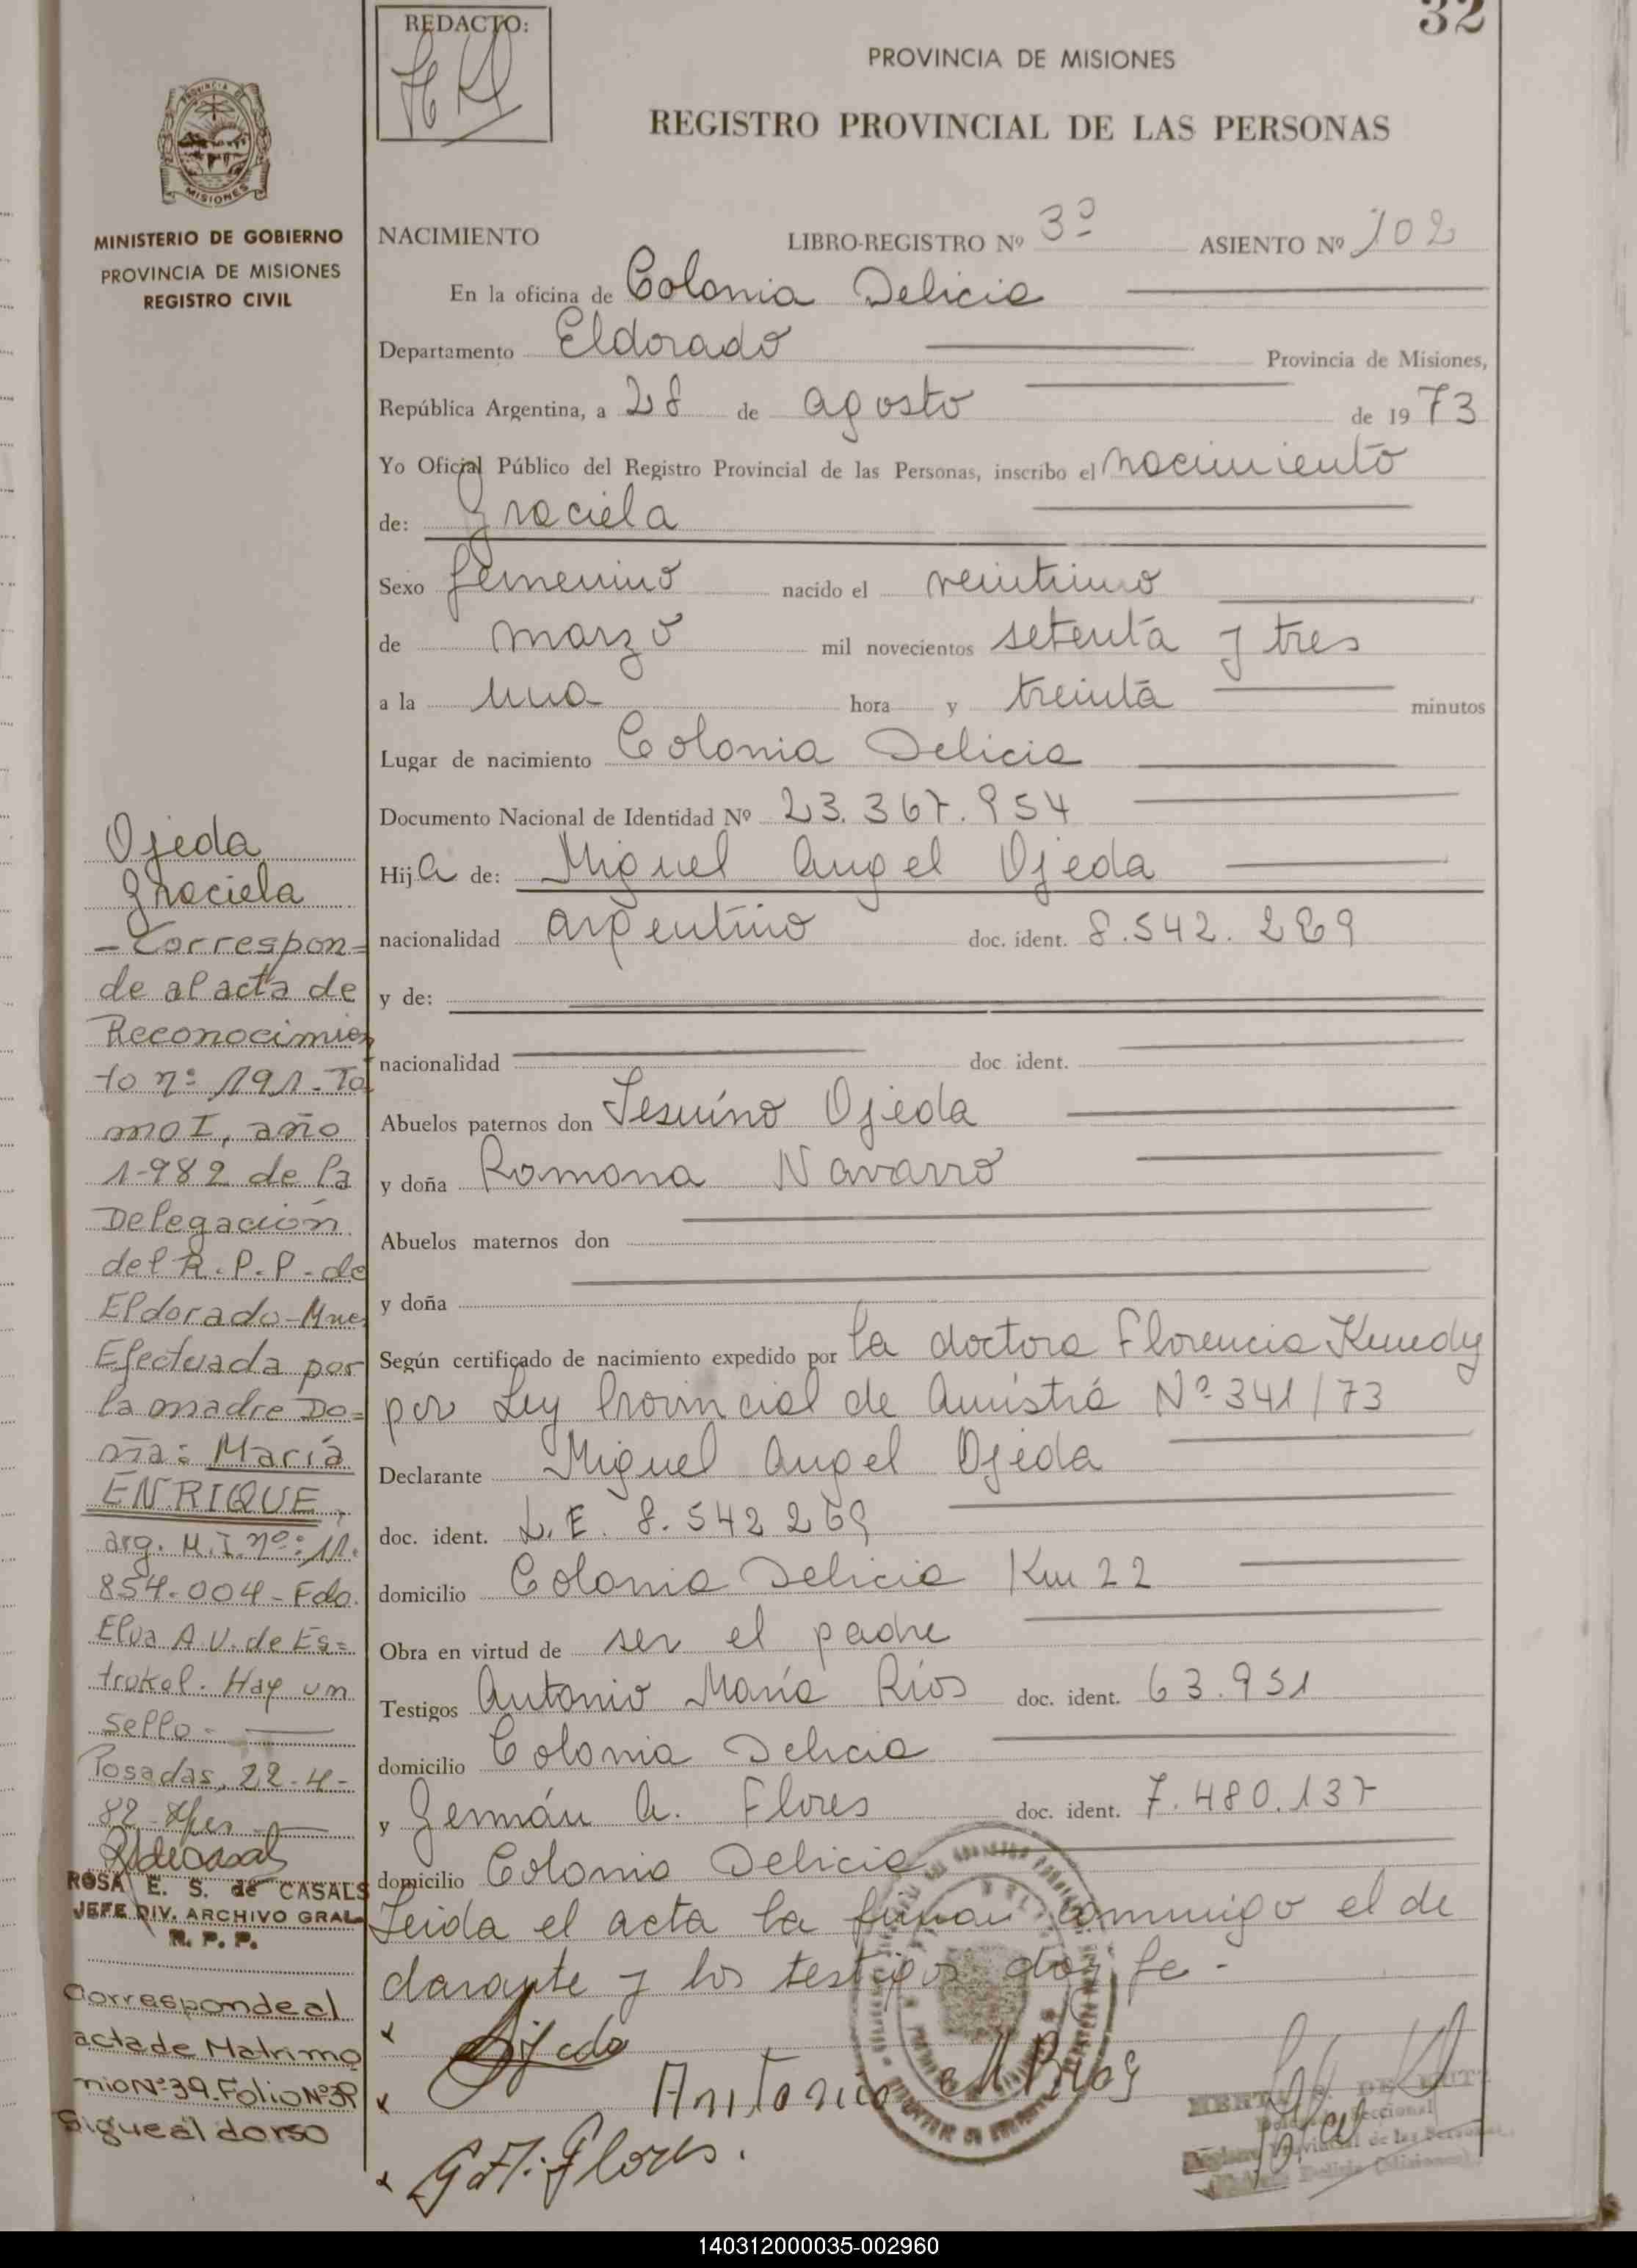 32
REDACTO:
PROVINCIA DE MISIONES
REGISTRO PROVINCIAL DE LAS PERSONAS
MISIONES
MINISTERIO DE GOBIERNO
PROVINCIA DE MISIONES
REGISTRO CIVIL
NACIMIENTO LIBRO-REGISTRO Nº 3º ASIENTO Nº 102
En la oficina de Colonia Delicia
Departamento Eldorado Provincia de Misiones,
República Argentina, a 28 de agosto de 1973
Yo Oficial Público del Registro Provincial de las Personas, inscribo el nacimiento
de: Graciela
Sexo femenino nacido el veintiuno
de marzo mil novecientos setenta y tres
a la una hora y treinta minutos
Lugar de nacimiento Colonia Delicia
Documento Nacional de Identidad Nº 23.367.954
Hija de: Miguel Angel Ojeda
nacionalidad argentino doc. ident. 8.542.269
y de:
nacionalidad doc. ident.
Abuelos paternos don Jesuíno Ojeda
y doña Romona Navarro
Abuelos maternos don
y doña
Según certificado de nacimiento expedido por la doctora Florencia Kenedy
por Ley Provincial de Amistía Nº 341/73
Declarante Miguel Angel Ojeda
doc. ident. L.E. 8.542 269
domicilio Colonia Delicia Km 22
Obra en virtud de ser el padre
Testigos Antonio María Ríos doc. ident. 63.951
domicilio Colonia Delicia
y Germán A. Flores doc. ident. 7.480.137
domicilio Colonia Delicia
Leida el acta la firman conmigo el de
clarante y los testigos doy fe.-
Ojeda
Antonio M Rios
G A. Flores.
Ojeda
Graciela
- Correspon=
de al acta de
Reconocimien
to nº 191-To
mo I, año
1-982 de la
Delegación
del R.P.P. de
Eldorado-Mnes
Efectuada por
la madre Do=
ña: María
ENRIQUE,
arg. M.I. nº: 11.
854.004-Fdo.
Elva A V. de Es=
trokel. Hay un
sello.-
Posadas, 22-4-
82-
ROSA E. S. de CASALS
JEFE DIV. ARCHIVO GRAL
R. P. P.
Corresponde al
acta de Matrimo
nio Nº 39. Folio Nº 39
Sigue al dorso
140312000035-002960